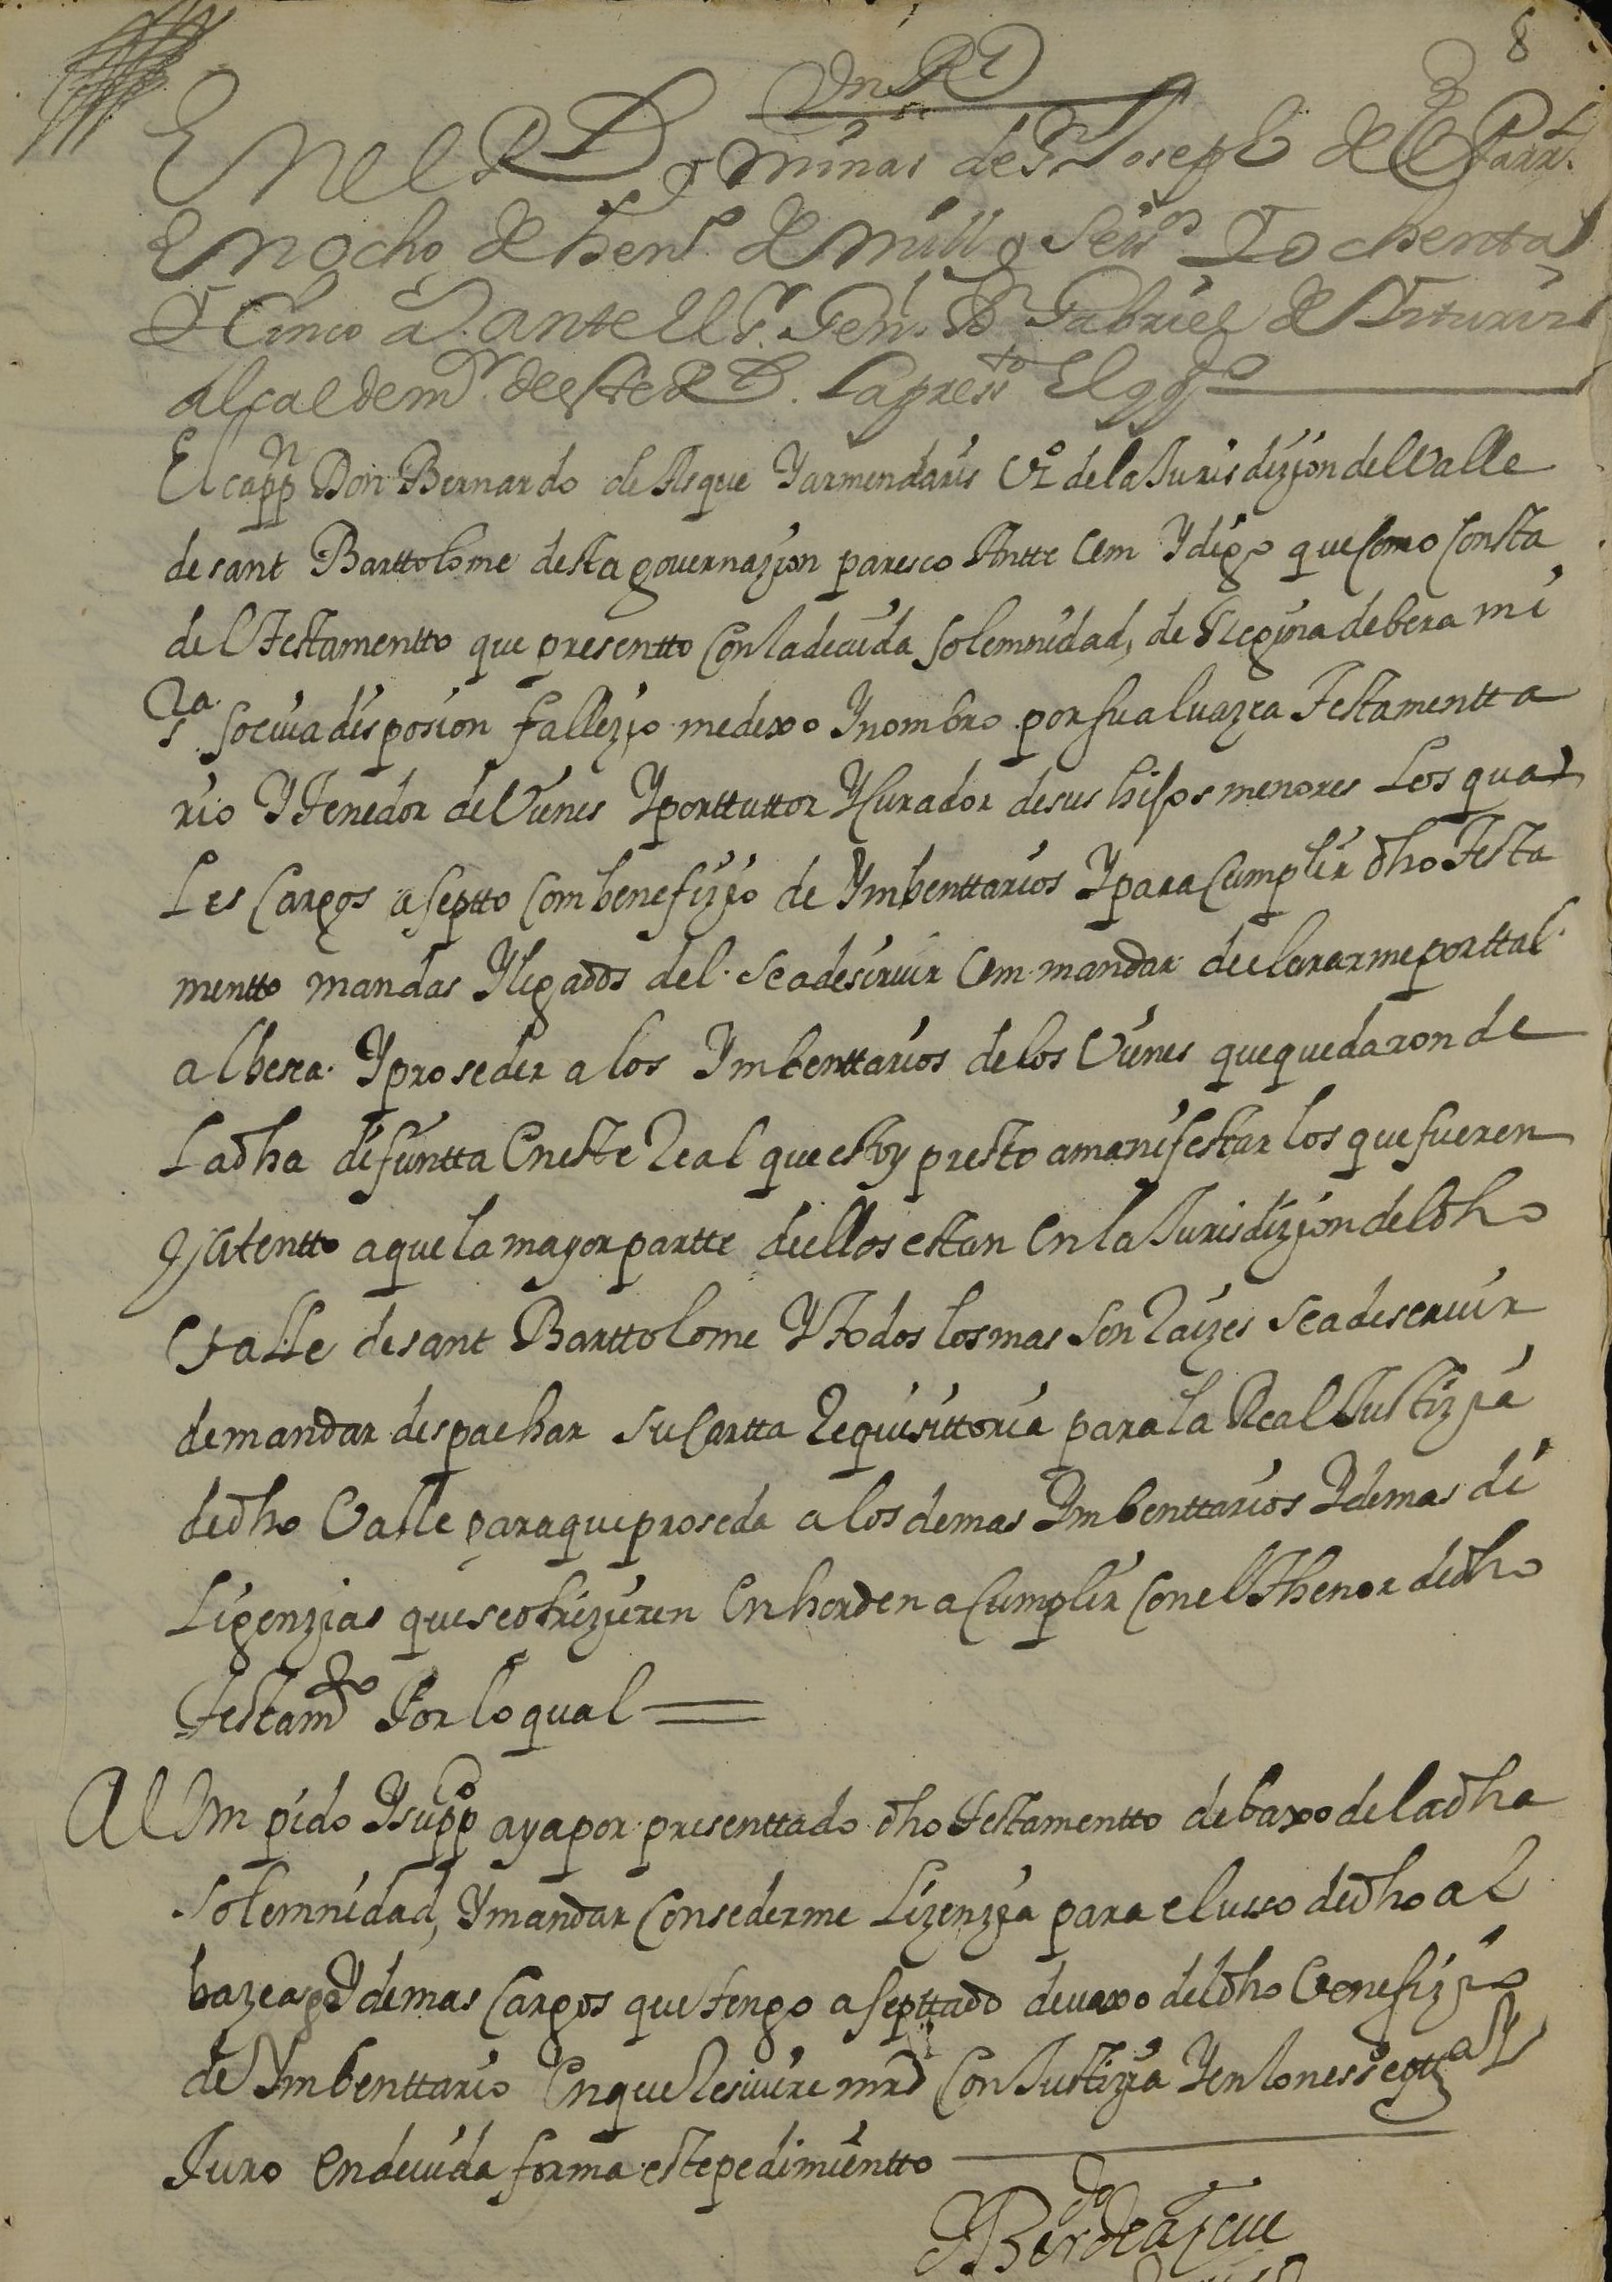 8
En el Rl y minas de Sr Joseph del Parrl
En ocho de hen.º de mill y seisºs y ochenta
y Cinco a.s ante el Sr Genl Dn Gabriel de Yturriz
alcalde mr deeste Rl. la pressto El qdo
El cappn Don Bernardo de Asque Yarmendaris Vzº de la Jurisdizjon del Valle
de sant Barttolome desta governazjon paresco Antte Um Y digo que como Consta
del Testamentto que presentto Con la deuida Solemnidad, de Regina debera mi
sra so cuia disposion fallezjo me dexo Y nombro por su aluazea Testamentta
rio Y Tenedor de Vienes Y por ttuttor Y Curador de sus hijos menores Los qua
Les Cargos aseptto Com benefizjo de Ymbenttarios Y para Cumplir dho Testa
mentto mandas Y legados del. Se a de seruir Um mandar declararme por ttal
albesea. Y proseder a los Ymbenttarios de los Vienes que quedaron de
La dha difuntta Eneste Real que estoy presto a manifestar los que fueren
Y atentto a que la mayor partte de ellos estan En la Jurisdizjon del dho
Valle de sant Barttolome Y Todos los mas Son Raizes Se a de seruir
de mandar despachar su Cartta Requisittoria para la Real Justizja
de dho Valle para que proseda a los demas Ymbenttarios Y demas di
Ligenzjas que se ofrezieren En horden a Cumplir Con el Thenor de dho
Testamto Por lo qual =
A Um pido Y suppco aya por presenttado dho Testamentto debaxo de la dha
Solemnidad, Y mandar Consederme Lizenzja para el usso de dho al
bazeasgo Y demas Cargos que tengo aseptado devaxo del dho Venefizjo
de Ymbenttario En que Resiuire mrd Con Justizja Y en lo nessegtta
Juro en deuida forma este pedimientto
Berdo de Azcue